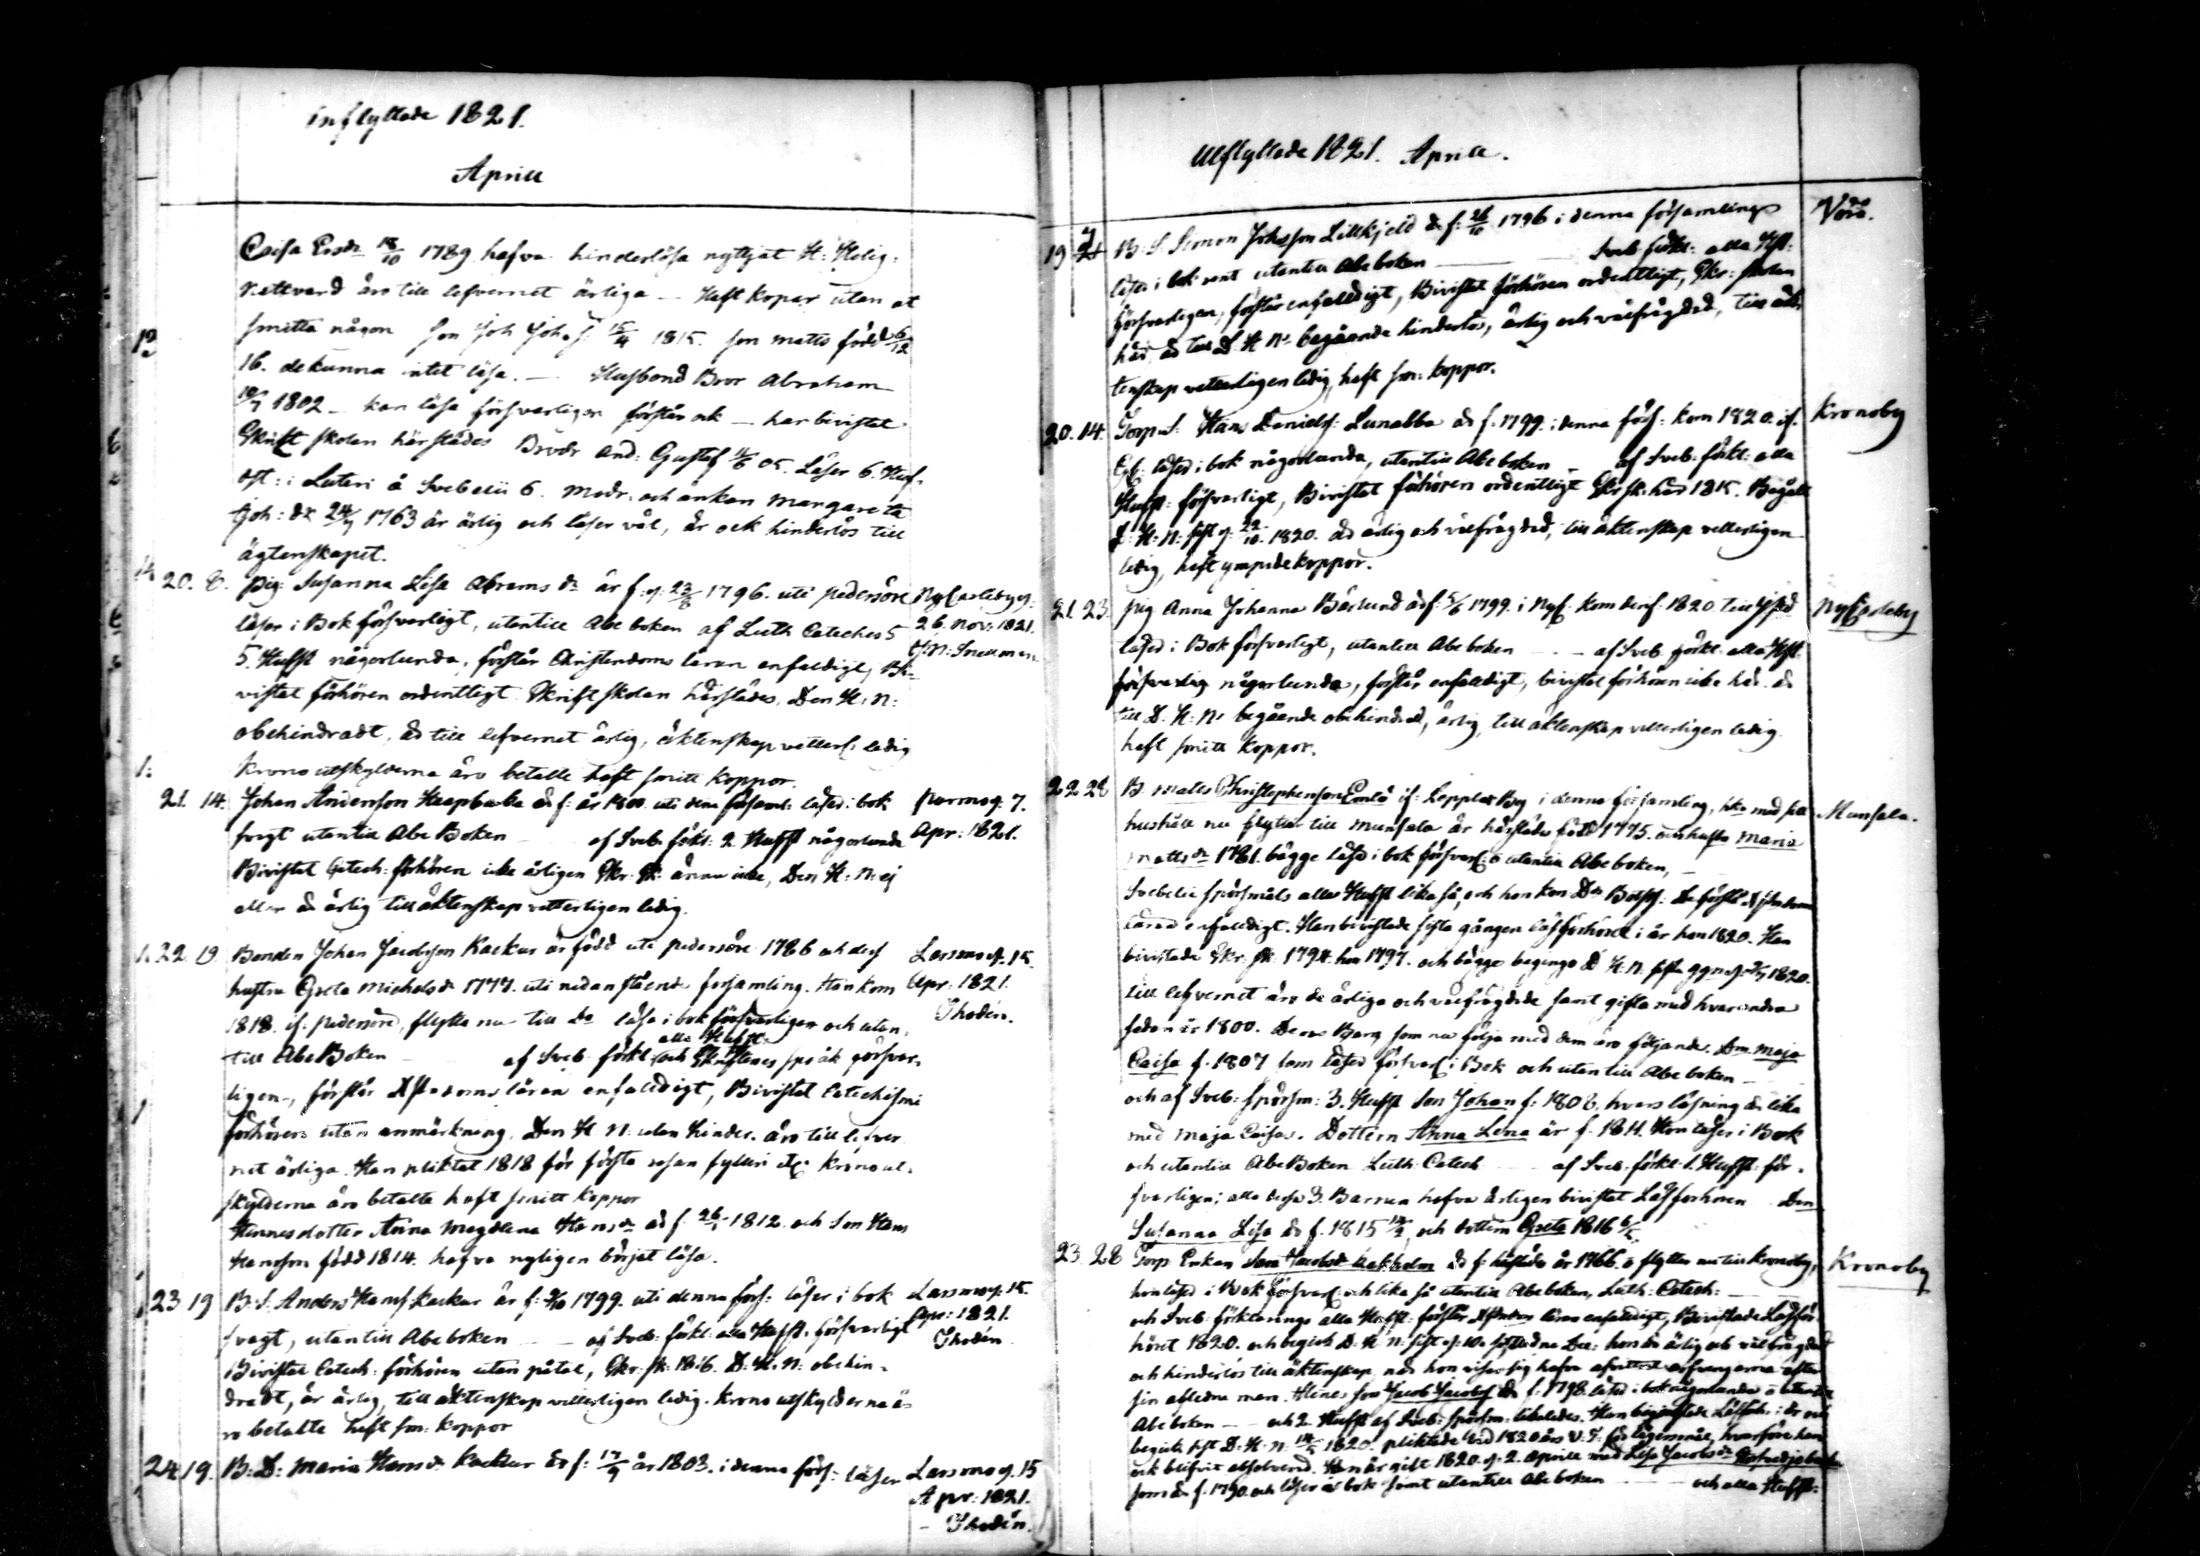 Inflyttade 1821.
Aprill
Caisa Ersdr 18/10 1789 hafva hinderlösa nyttjat H: Helig:
Nattvard äro till lefvernet ärliga — Haft kopor utan at
smitta någon Son Joh Joh. f: 15/4 1815. son Matts född 6/12
16. de kunna intet läsa. — Husbond Bror Abraham
1802 — kan läsa försvarligen förstår ock — har bivistat
Skrift skolan härstädes And: Gustaf 05. Läser 6. Huf-
st: i Luteri å Svebelii 6. Modr. och änkan Margareta
Joh: dr 24/7 1763 är ärlig och läser väl, är ock hinderlös till
ägtenskapet.
20. 8. Pig: Susanna Lisa Abrams dr är f. d. 23/8 1796. uti Pedersöre
läser i Bok försvarligt, utantill Abc boken af Luth Cateches 5
5. Hufst någorlunda, förstår Christendoms läran enfaldigt, Bi-
vistat förhören ordentligt Skriftskolan härstädes, Den H: N:
obehindradt, är till lefvernet ärlig, äktenskap vetterl: ledig
Krono utskylderna äro betalte haft smitt koppor.
NyCarleby d.
26. Nov: 1821.
Snellman
21. 14. Johan Andersson Haapbacka är f: år 1800. uti denna församl: läser i bok
svagt utantill Abc Boken af Sveb: förkl: 2. Hufst någorlunda
Bivistat Catech: förhören icke årligen Skr. Sk: ännu icke, Den H: N: ej
eller är ärlig till äktenskap vetterligen ledig.
Purmo d. 7.
Apr: 1821.
22 19. Bonden Johan Jacobsson Kackur är född uti Pedersöre 1786 och dess
hustru Greta Michelsdr 1777. uti nedanstående församling. Han kom
1818. if: Pedersöre, flytta nu till Do läsa i bok försvarligen och utan-
till Abc Boken af Sveb: förkl: alla Hufst: och Skriftenes språk försvar-
ligen, förstår Xstendoms läran enfaldigt, Bivistat Catechismi
förhören utan anmärkning. Den H N: utan hinder. äro till lefver
net ärliga. Han pliktat 1818 för första resan fylleri etc. Krono ut-
skylderna äro betalte haft smitt koppor
Hennes dotter Anna Magdlena Hansdr är f. 1812. och Son Hans
Hansson född 1814. hafva nyligen börjat läsa.
Larsmo d. 15.
Apr: 1821.
Thodén.
23 19 B. S. Anders Hanss Kackur är f: 1799. uti denna förs: läser i bok
svagt, utantill Abc boken — af Sveb: förkl: alla Hufst: försvarligt
Bivistat Catech: förhören utan påtal, Skr. Sk: 1816. D: H: N: obehin-
dradt, är ärlig, till äktenskap vetterligen ledig. Krono utskylderna ä-
ro betalte haft sm: koppor
Larsmo d. 15.
Apr: 1821.
Thodén
24 19. B: D: Maria Hansdr Kackur är f: 17/9 år 1803. i denna förs: läser
Larsmo d. 15
Apr: 1821.
— Thodén.
Utflyttade 1821. Aprill.
19 B. S. Simon Johsson Lillkjeld är f: 26/10 1796 i denna församling
läser i bok rent utantill Abc boken — Sveb förkl: alla Hfst:
försvarligen, förstår enfalldigt, Bivistat förhören ordentligt, Skr: skolan
här, är till D. H. N: begående hinderlös, ärlig och välfrägdad, till äk-
tenskap vetterligen ledig, haft sm: koppor.
Vörå.
20. 14. Torp. S. Hans Daniels: Lunabba är f. 1799. i denna förs: kom 1820. if.
läser i bok någorlunda, utantill Abc boken — af Sveb: förkl: alla
Hufst: försvarligt, Bivistat förhören ordentligt Skr sk: här 1815. Begått
D: H: N: sist d: 22/10. 1820. är ärlig och välfrägdad, till äktenskap vetterligen
ledig, haft ympade koppor.
Kronoby
21. 23. Pig Anna Johanna Bärlund är f: 5/6 1799. i NyC. kom derif: 1820 till
läser i Bok försvarligt, utantill Abc boken — — af Sveb. förkl: alla Hfst:
försvarlig någorlunda, förstår enfalldigt, bivistat förhören icke här. är
till D. H. N: begående obehindrad, ärlig, till äktenskap vetterligen ledig
haft smitt koppor.
NyCarleby
22 28 B. Matts Christophersson Emlä if: Lepplax By i denna församling, hka med sitt
hushåll nu flyttar till Munsala är härstädes född 1775. och hustru Maria
Mattsdr 1781. bägge läser i bok försvarl: o utantill Abc boken, —
Svebelii spörsmåls alla Hufst lika så, och hon kan D. Botps. De förstå Xstendoms
läran enfaldigt. Han bivistade sista gången läsförhöret i år hon 1820. Han
bivistade Skr. sk: 1794. hon 1797. och bägge begingo D. H. N. sista ggn d. 1820.
till lefvernet äro de ärliga och välfrägdade samt gifta med hvarandra
sedan år 1800. Deras Barn som nu följa med dem äro följande. Dtr. Maja
Caisa f. 1807 som läser försvarl: i Bok och utantill Abc boken
och af Sveb: spörsm: 3. Hufst Son Johan f: 1808. hvars läsning är lika
med Maja Caisas. Dottern Anna Lena är f. 1811. Hon läser i Bok
och utantill Abc Boken Luth: Catech — af Sveb. förkl. 1. Hufst: för-
svarligen; alla dessa 3. Barnen hafva årligen bivistat Läsförhören. Dtn
Susanna Lisa är f. 1815 och dottern Greta 1816
Munsala.
23. 28 Torp Enkan Sara Jacobsdr är f: härstädes år 1766. o flytter nu till Kronoby,
hon läser i Bok försvarl: och lika så utantill Abc boken, Luth: Catech: —
och Sveb förklarings alla Hufst: förstår Xstendoms läran enfaldigt, Bivistade Läsför-
höret 1820. och begick D: H: N: sist d: 10. sistledne Dec: hon är ärlig och välfrägdad
och hinderlös till äktenskap, när hon viser sig hafva afvittrat arfvingarna efter
sin aflidna man. Hänes son Jacob Jacobs: är f: 1798. läser i bok någorlunda o utantill
Abc boken — och 2. Hufst af Sveb: spörsm. likaledes. Han bivistade Läsförh: i år och
begick sist D. H. N. 1820. pliktade vid 1820 års V. T. för lägersmål, hvarföre han
ock blifvit absolverad. Han är gift 1820. d. 2. Aprill med Lisa Jacobsdr
som är f. 1790. och läser i bok samt utantill Abc boken — och alla Hufst:
Kronoby